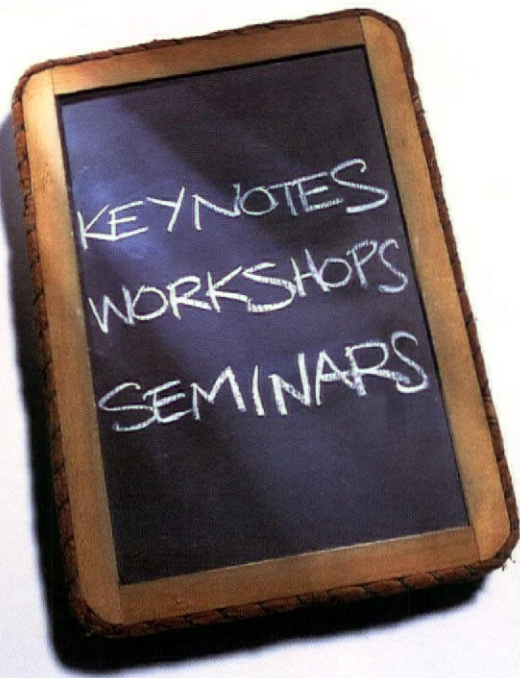 KEYNOTES
WORKSHOPS
SEMINARS